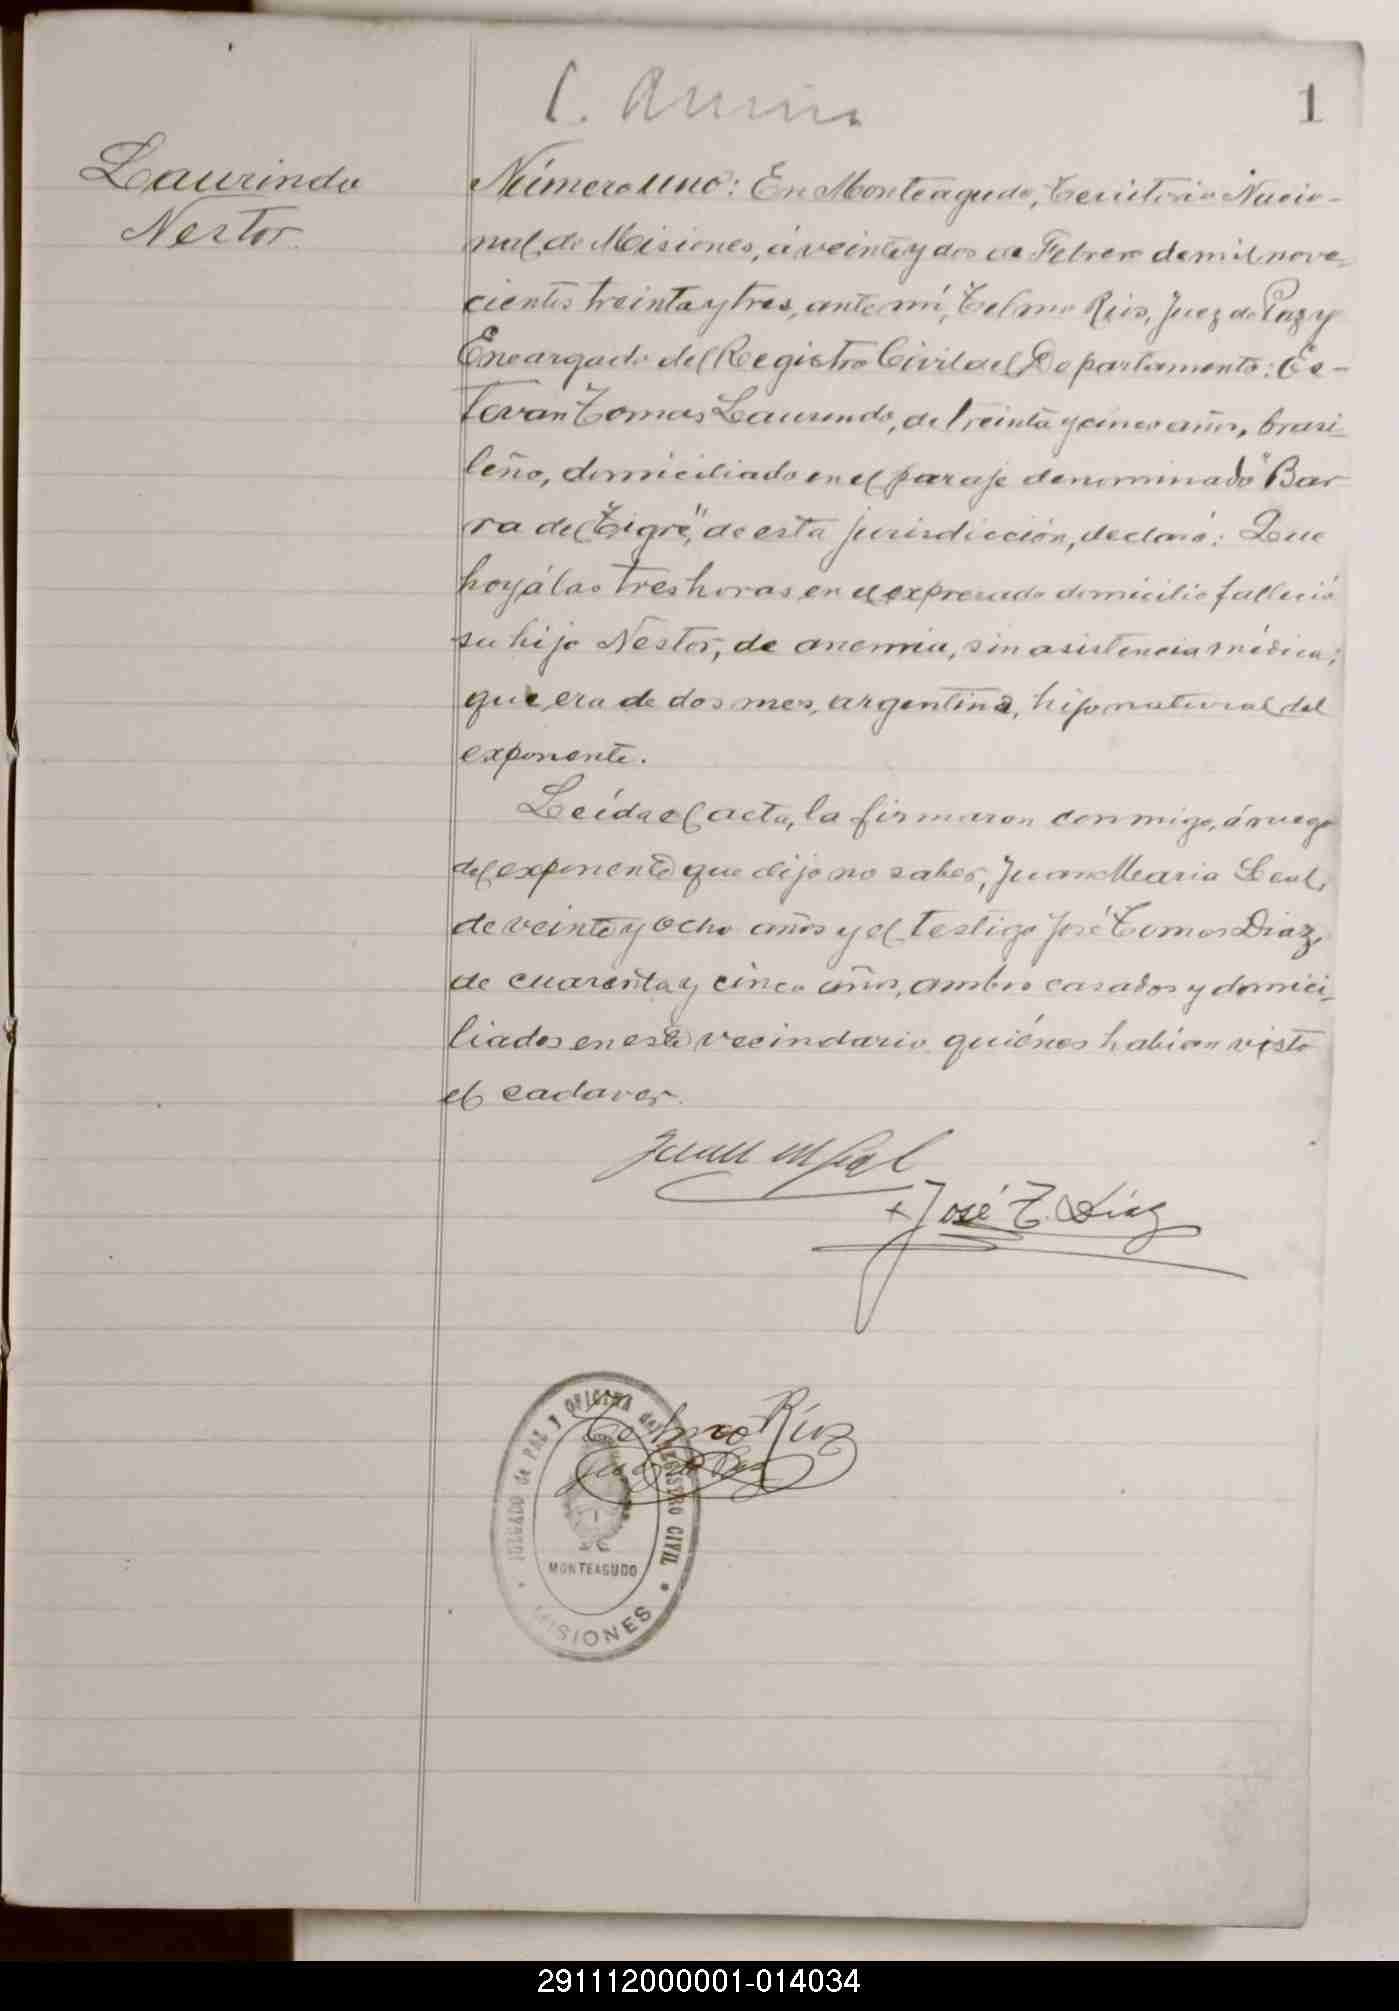 1
Laurindo
Nestor.
Número uno: En Monteagudo, Territorio Nacio-
nal de Misiones, á veinte y dos de Febrero de mil nove-
cientos treinta y tres, ante mí, Telmo Rios, Juez de Paz y
Encargado del Registro Civil del Departamento: Es-
tevan Tomas Laurindo, de treinta y cinco años, brasi-
leño, domiciliado en el paraje denominado "Bar-
ra del Tigre", de esta jurisdicción, declaró: Que
hoy á las tres horas en el expresado domicilio falleció
su hijo Nestor, de anemia, sin asistencia médica;
que era de dos mes, argentino, hijo natural del
exponente.
Leída el acta, la firmaron conmigo, á ruego
del exponente que dijo no saber, Juan Maria Leal,
de veinte y ocho años y el testigo José Tomas Diaz,
de cuarenta y cinco años, ambos casados y domici-
liados en este vecindario quiénes habían visto
el cadaver.
Juan M Leal
+ José T. Díaz
Telmo Ríos
Juez de Paz
JUZGADO de PAZ Y OFICINA del REGISTRO CIVIL
MONTEAGUDO
MISIONES
291112000001-014034